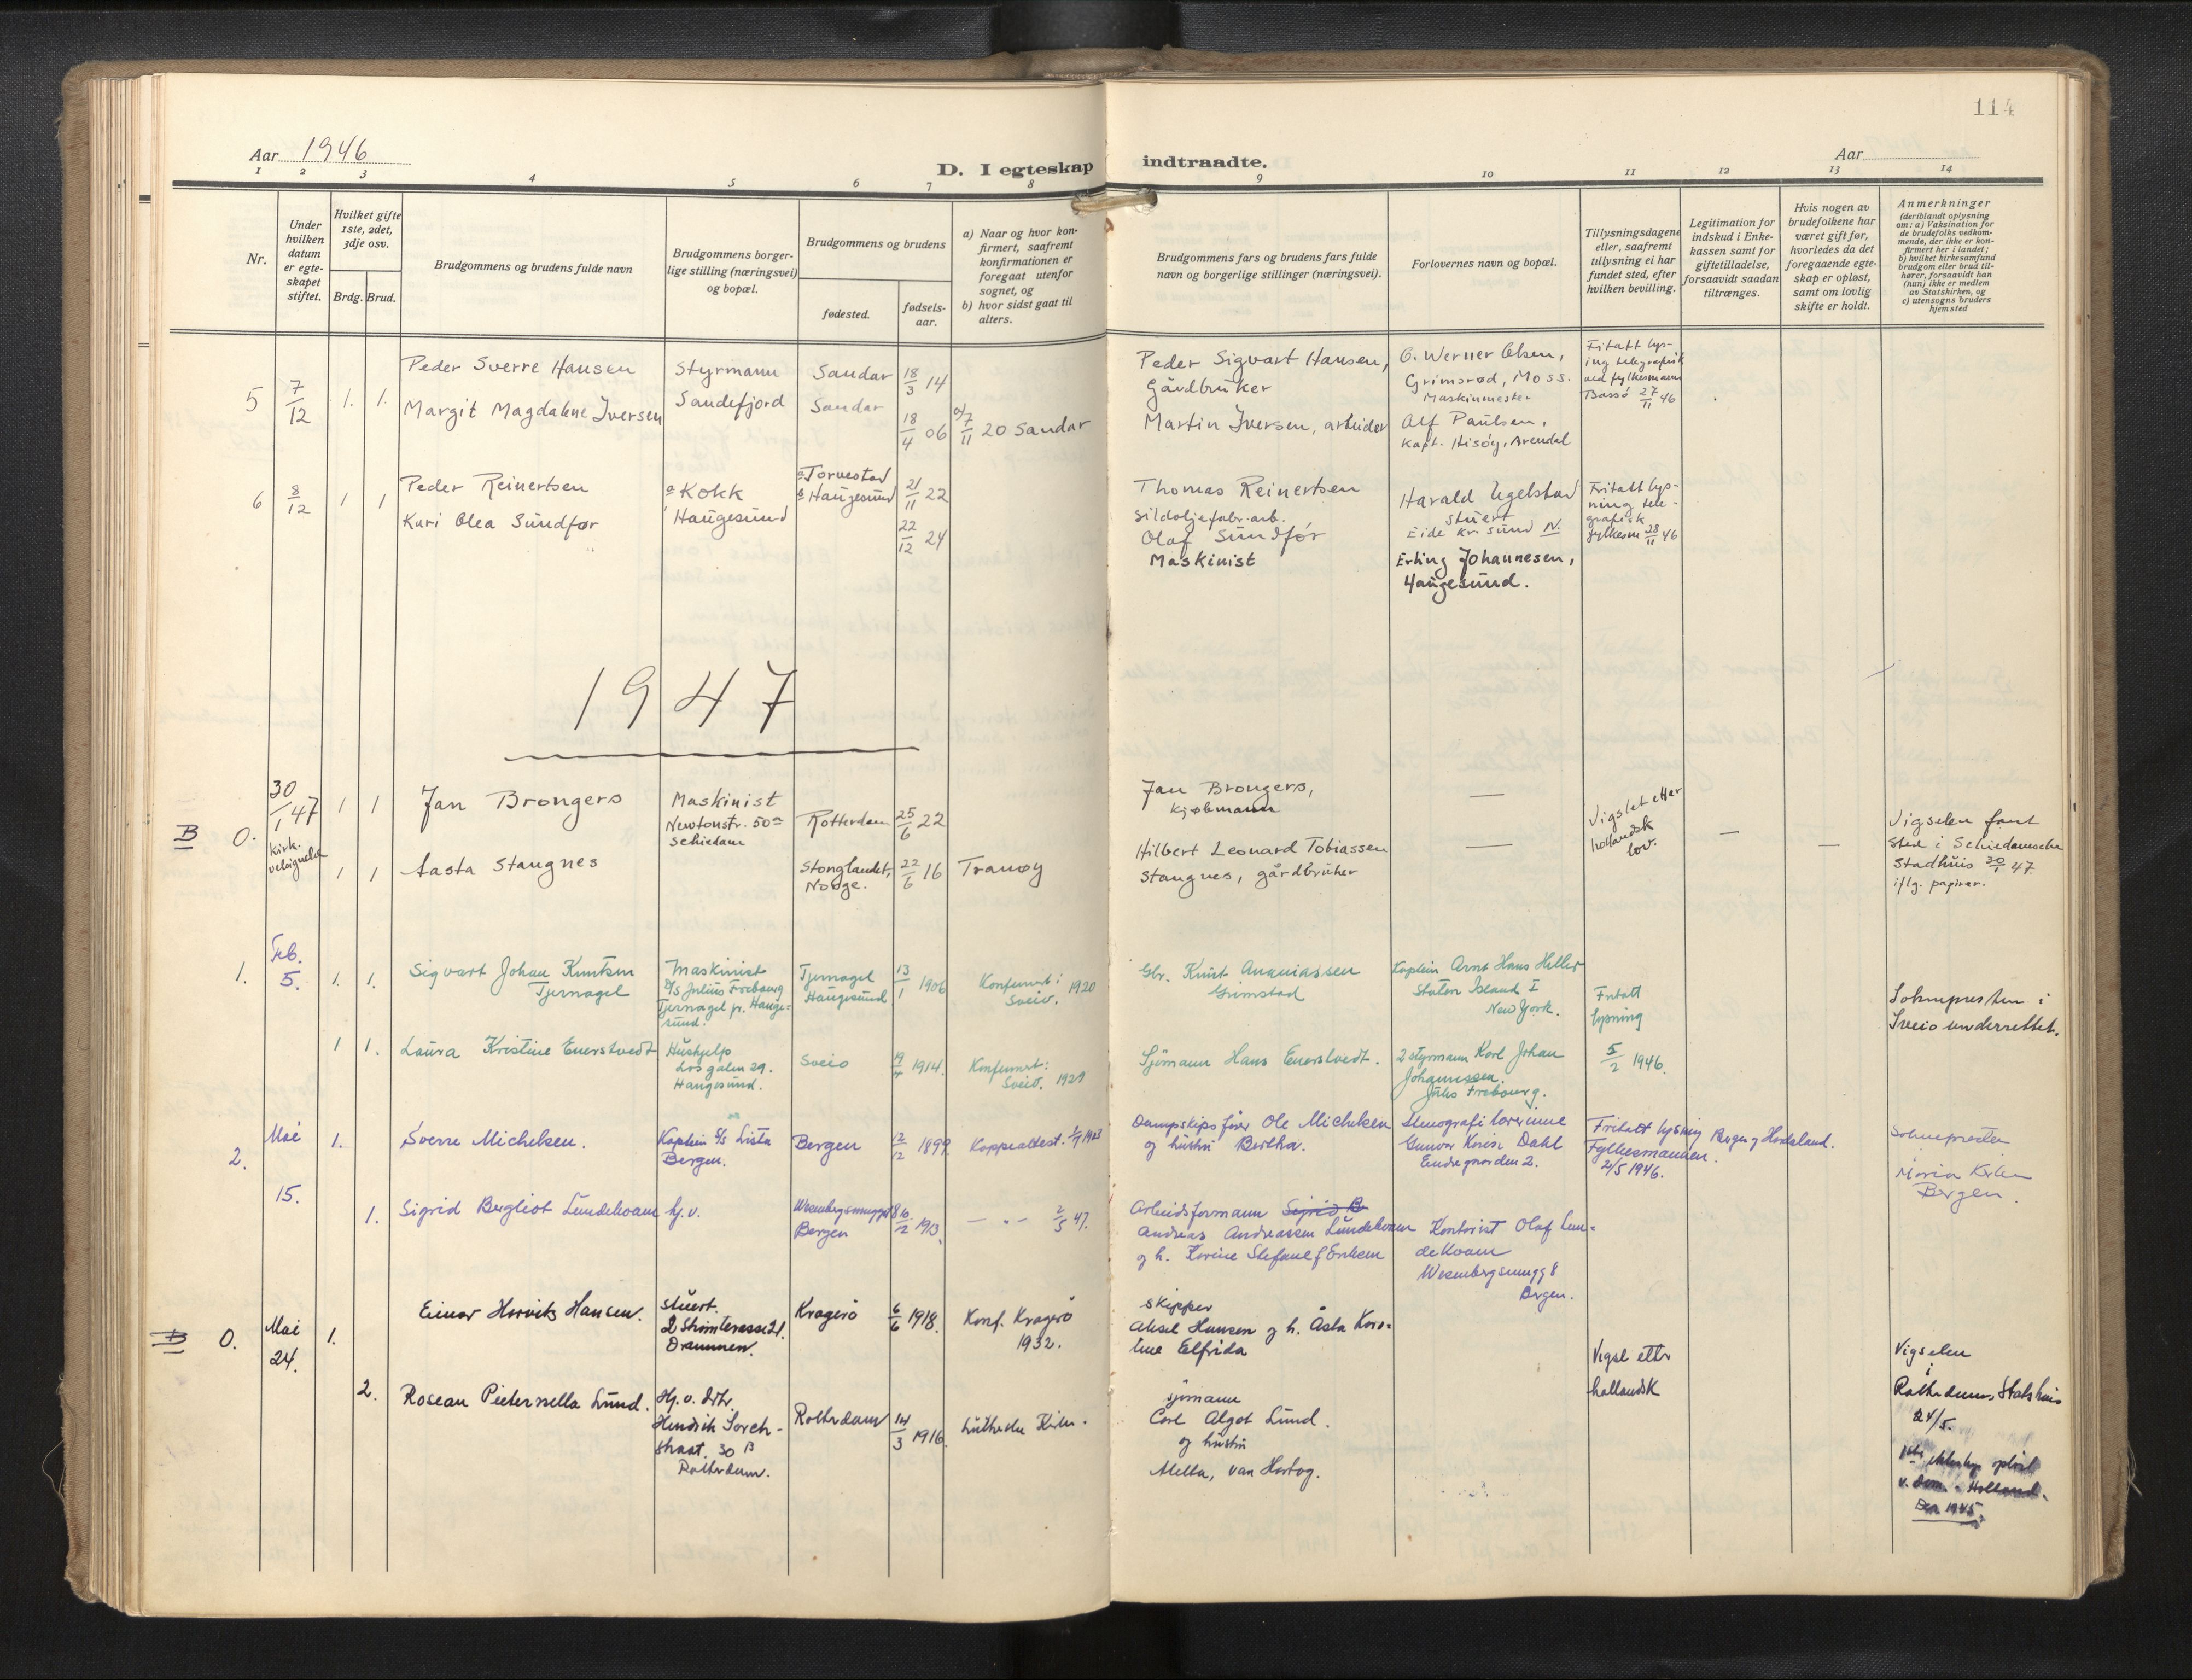 114
Aar 1946
D. I egteskap indtraadte.
Aar
1 2 3 4 5 6 7 8 9 10 11 12 13 14
Nr.
Under
hvilken
datum
er egte-
skapet
stiftet.
Hvilket gifte
1ste, 2det,
3dje osv.
Brdg. Brud.
Brudgommens og brudens fulde navn
Brudgommens borger-
lige stilling (næringsvei)
og bopæl.
Brudgommens og brudens
fødested.
fødsels-
aar.
a) Naar og hvor kon-
firmert, saafremt
konfirmationen er
foregaat utenfor
sognet, og
b) hvor sidst gaat til
alters.
Brudgommens fars og brudens fars fulde
navn og borgerlige stillinger (næringsvei).
Forlovernes navn og bopæl.
Tillysningsdagene
eller, saafremt
tillysning ei har
fundet sted, efter
hvilken bevilling.
Legitimation for
indskud i Enke-
kassen samt for
giftetilladelse,
forsaavidt saadan
tiltrænges.
Hvis nogen av
brudefolkene har
været gift før,
hvorledes da det
foregaaende egte-
skap er opløst,
samt om lovlig
skifte er holdt.
Anmerkninger
(deriblandt oplysning
om: a) Vaksination for
de brudefolks vedkom-
mende, der ikke er kon-
firmert her i landet;
b) hvilket kirkesamfund
brudgom eller brud til-
hører, forsaavidt han
(hun) ikke er medlem
av Statskirken, og
c) utensogns bruders
hjemsted
5
7/12
1. 1.
Peder Sverre Hansen
Margit Magdalene Iversen
Styrmann
Sandefjord
Sandar 18/3 14
Sandar 18/4 06
a) 7/11 20 Sandar
Peder Sigvart Hansen,
Gårdbruker
Martin Iversen, arbeider
G. Werner Olsen,
Grimsrød, Moss.
Maskinmester
Alf Paulsen,
Kapt. Hisøy, Arendal
Fritatt lys-
ing telegrafisk
ved fylkesmann
27/11 46
6
8/12
1 1
Peder Reinertsen
Kari Olea Sundfør
Kokk
Haugesund
a Torvestad
b Haugesund
21/11 22
22/12 24
Thomas Reinertsen
Sildoljefabr.arb.
Olaf Sundfør
Maskinist
Harald Ugelstad
Stuert
Eide Kr.sund N.
Erling Johannesen,
Haugesund.
Fritatt lys-
ning tele-
grafisk
fylkesm 28/11 46
1947
B 0.
30/1 47
kirk.
velsignelse
1 1
Jan Brongers
Maskinist
Newtonstr. 50a
Schiedam
Rotterdam 25/6 22
Jan Brongers,
Kjøbmann
—
Vigslet etter
hollandsk
lov.
—
—
Vigselen fant
sted i Schiedamsche
Stadhuis 30/1 47
iflg. papirer.
1 1
Aasta Stangnes
Stonglandet,
Norge.
22/6 16
Tranøy
Hilbert Leonard Tobiassen
Stangnes, gårdbruker
—
1.
Feb.
5.
1. 1.
Sigvart Johan Knutsen
Tjernagel
Maskinist
Tjernagel pr. Hauge-
sund.
Tjernagel
Haugesund
13/1 1906
Konfirmert i
Sveio. 1920
Gbr. Knut Ananiassen
Grimstad
Kaptein Arnt Hans Heller
Staten Island I
New York.
Fritatt
lysning
5/2 1946.
Soknepresten i
Sveio underrettet.
1 1.
Laura Kristine Enerstvedt
Hushjelp
29.
Haugesund.
Sveio
1914.
Konfirmert:
Sveio. 1929
Sjömann Hans Enerstvedt.
2 styrmann Karl Johan
Johannssen.
2.
Mai
15.
1.
Sverre Michelsen.
Kaptein S/S Lista
Bergen.
Bergen 12/12 1899
Koppeattest.
Dampskipsfører Ole Michelsen
og hustru Bertha.
Gunvor Dahl
2.
Fritatt lysning Bergen og Hordaland.
Fylkesmannen.
2/5 1946.
Maria Kirken
Bergen.
1.
Sigrid Bergliot Lundekvam
hj.v.
Bergen
1913.
2/5 47.
Arbeidsformann
Andreas Andreassen Lundekvam
og h. Karine Stefane
Kontorist Olaf Lun-
dekvam
Wesenbergsmugg 8
Bergen.
B 0.
Mai
24.
1.
Einar Horvits Hansen.
stuert.
Drammen.
Kragerø 6/6 1918.
Konf. Kragerø
1932.
skipper
Aksel Hansen og h. Åsta Karo-
line Elfrida
Vigsl etter
hollandsk
Vigselen
i
Rotterdams Stats hus
24/5.
2.
Rosean Pieternella Lund.
Hendrik Sorch-
straat 30 B
Rotterdam.
Rotterdam 14/3 1916.
Lutherske Kirke.
sjömann
Carl Algot Lund.
og hustru
Metta, van Hartog.
1945.